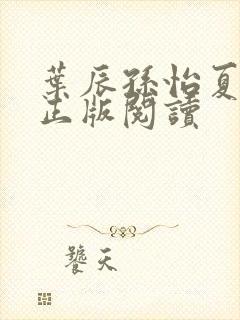 葉辰孫怡夏
正版閱讀
饕天